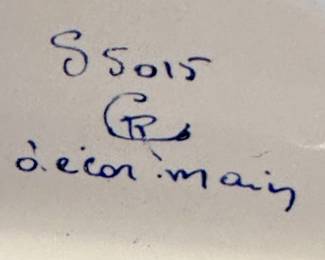 S 5015
CR
décor main